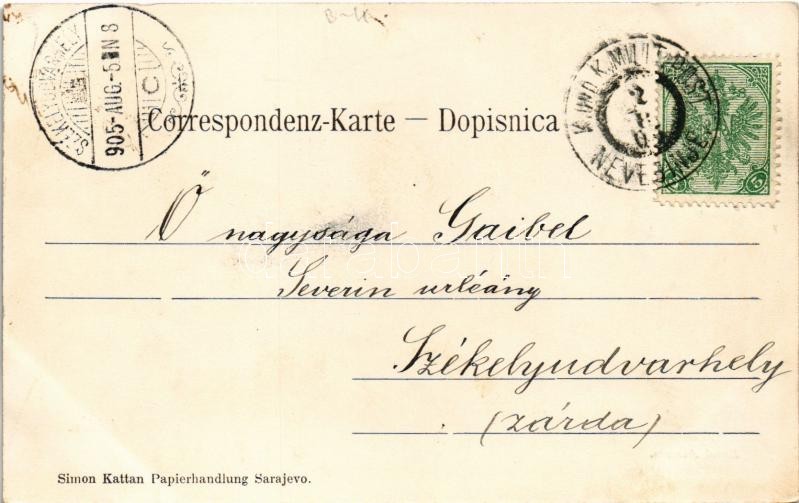 SZÉKELYUDVARHELY
905-AUG.-5 N 8
K. UND K. MILIT. POST
NEVESINJE
5
Correspondenz-Karte — Dopisnica
Ő nagysága Gaibel
Severin urléány
Székelyudvarhely
(zárda)
Simon Kattan Papierhandlung Sarajevo.
darabanth